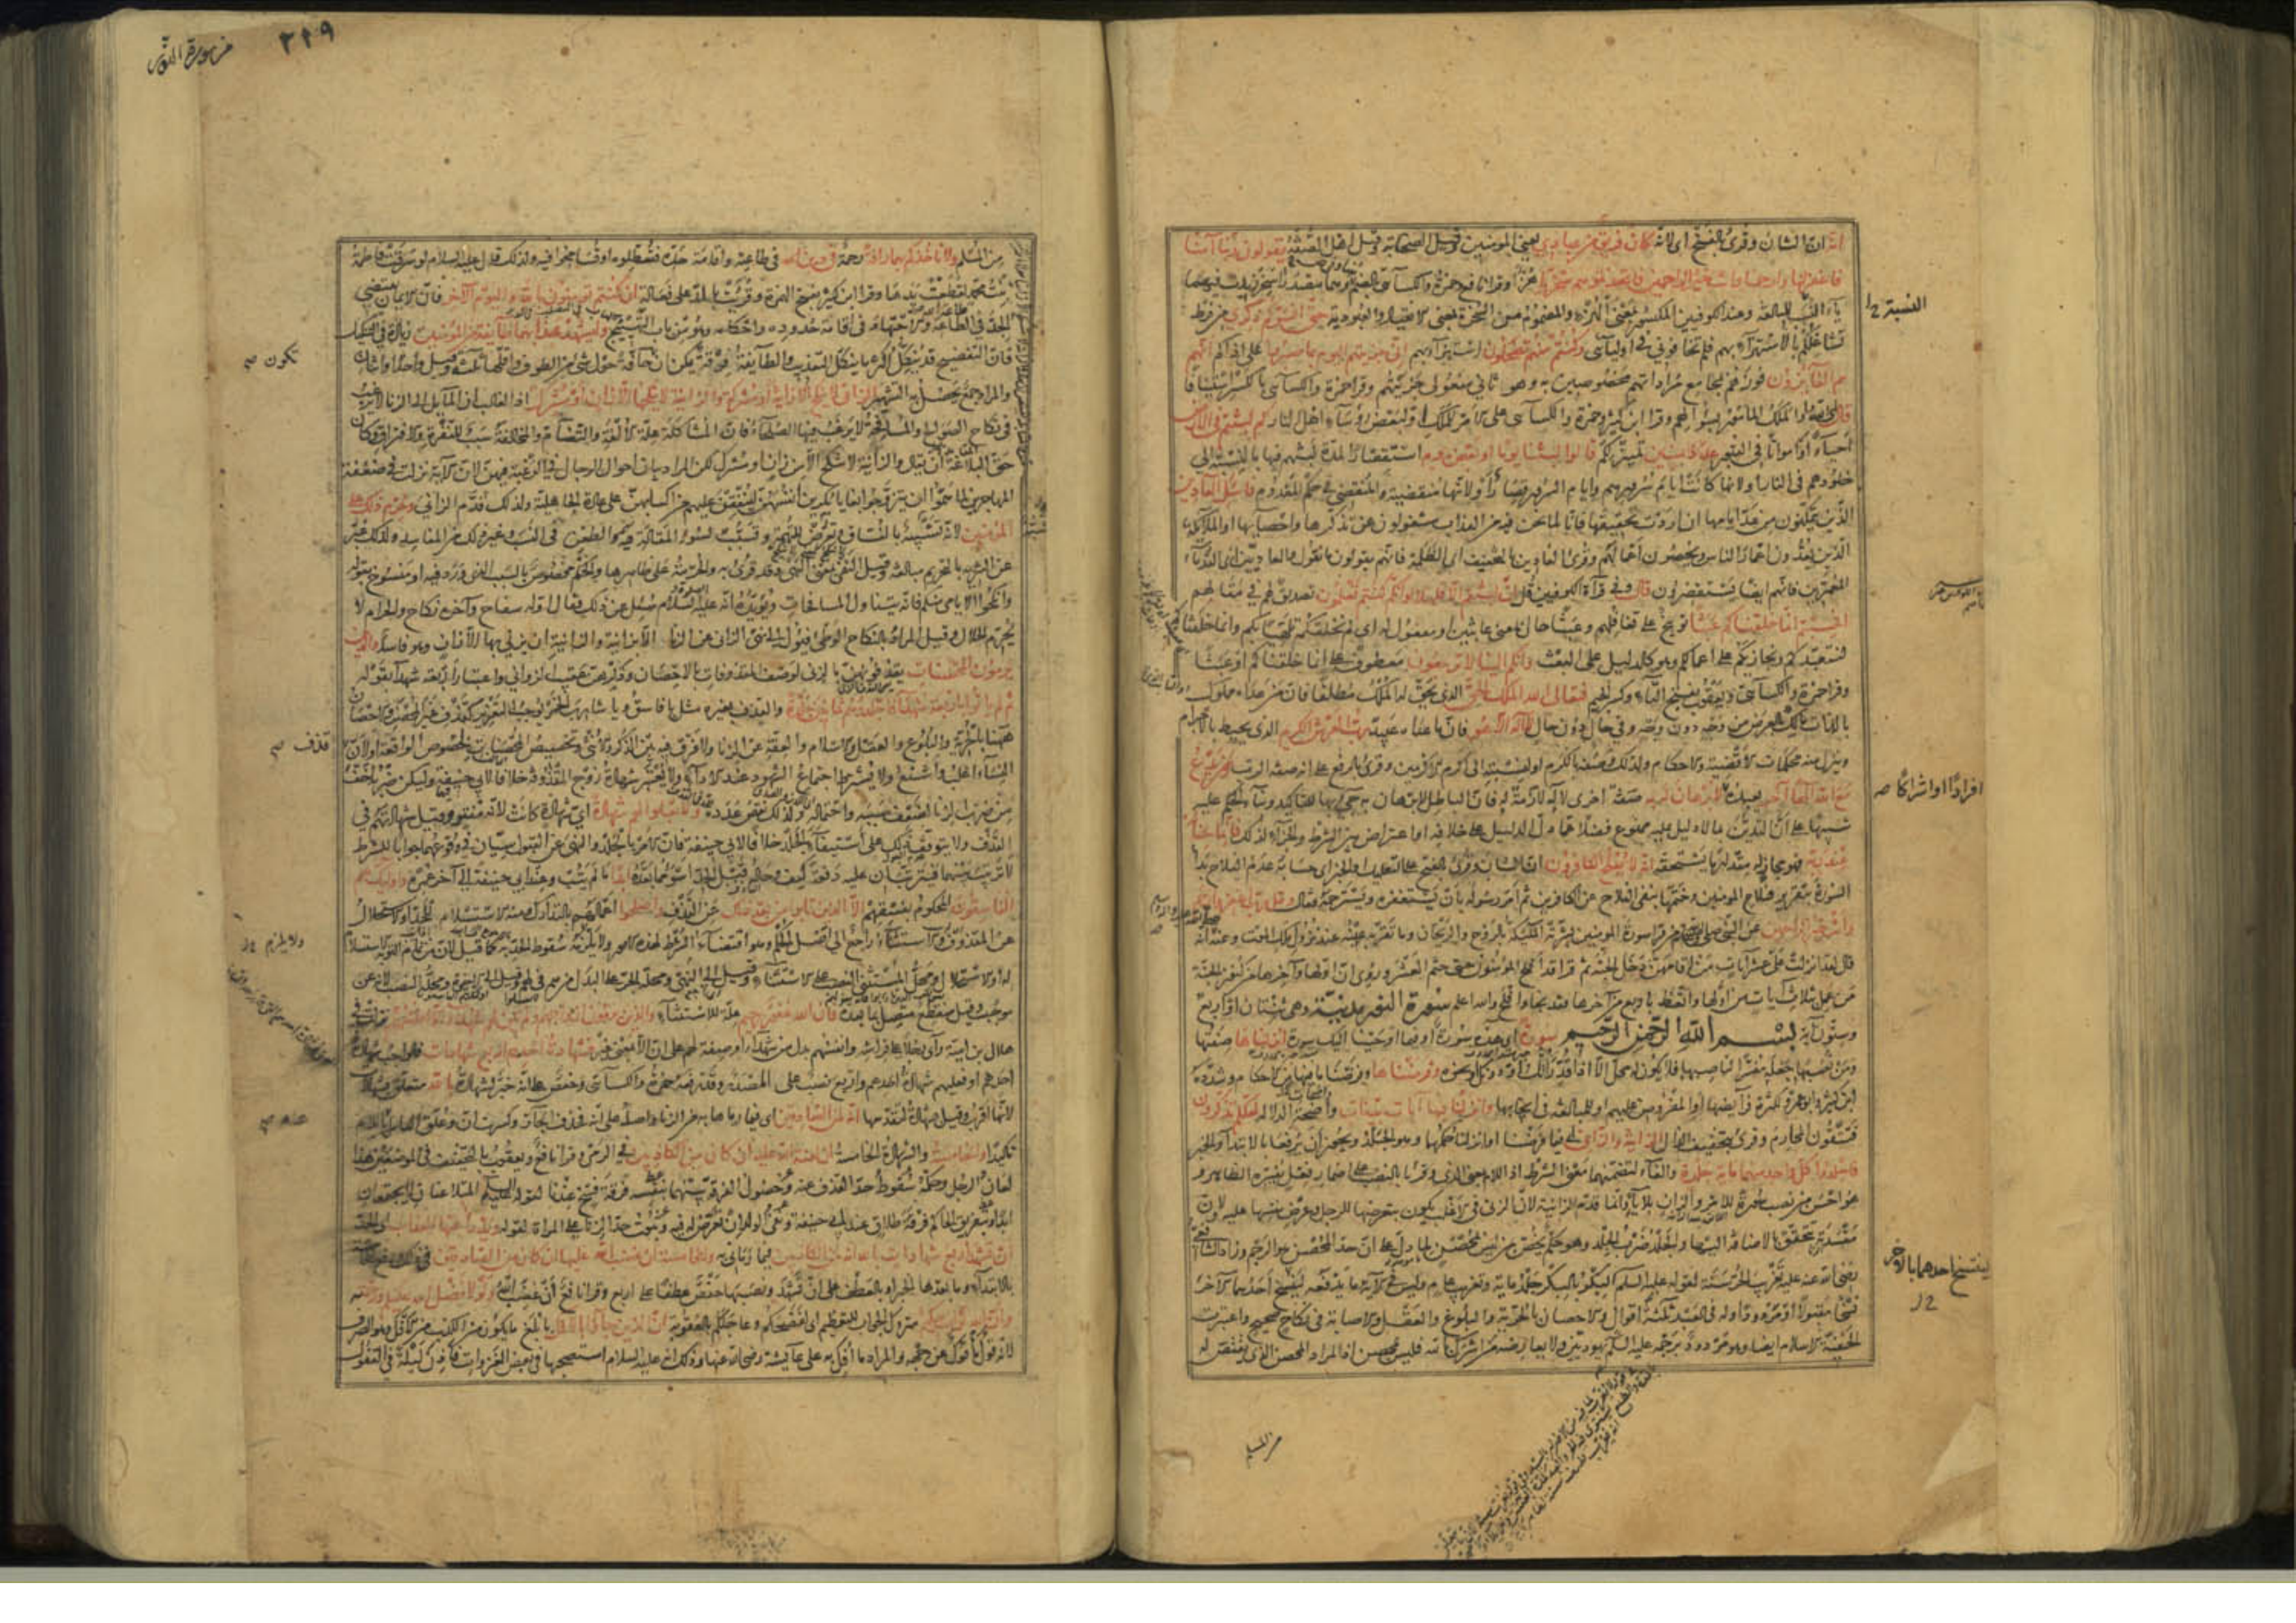 انه ان الشان وقرئ بالفتح اى لانه كان فريق من عبادى يعنى المومنين وقيل الصحابة وقيل اهل الصفة يقولون ربنا آمنا
فاغفر لنا وارحمنا وانت خير الراحمين فاتخذتموهم سخريا هزؤا وقرا نافع وحمزة والكسائى بالضم وهما مصدر السخر زيدت فيهما
ياء النسب للمبالغة وعند الكوفيين المكسور بمعنى الهزء والمضموم من السخرة بمعنى الانقياد والعبودية حتى انسوكم ذكرى من فرط
تشاغلكم بالاستهزاء بهم فلم تخافونى فى اوليائى وكنتم منهم تضحكون استهزاء بهم انى جزيتهم اليوم بما صبروا على اذاكم انهم
هم الفائزون فوزهم بمجامع مراداتهم مخصوصين به وهو ثانى مفعولى جزيتهم وقرا حمزة والكسائى بالكسر استينافا
قال اى الله او الملك المامور بسؤالهم وقرا ابن كثير وحمزة والكسائى على الامر للملك او لبعض رؤساء اهل النار كم لبثتم فى الارض
احياء او امواتا فى القبور عدد سنين تمييز لكم قالوا لبثنا يوما او بعض يوم استقصارا لمدة لبثهم فيها بالنسبة الى
خلودهم فى النار او لانها كانت ايام سرورهم وايام السرور قصار او لانها منقضية والمنقضى فى حكم المعدوم فاسئل العادين
الذين يتمكنون من عد ايامها ان اردت تحقيقها فانا لما نحن فيه من العذاب مشغولون عن تذكرها واحصائها او الملائكة
الذين يعدون اعمار الناس ويحصون اعمالهم وقرئ العادين بالتخفيف اى الظلمة فانهم يقولون ما نقول والعاديين اى القدماء
المعمرين فانهم ايضا يستقصرون قال وفى قراءة الكوفيين قل ان لبثتم الا قليلا لو انكم كنتم تعلمون تصديق لهم فى مقالهم
افحسبتم انما خلقناكم عبثا توبيخ على تغافلهم وعبثا حال بمعنى عابثين او مفعول له اى لم نخلقكم تلهيا بكم وانما خلقناكم
لنتعبدكم ونجازيكم على اعمالكم وهو كالدليل على البعث وانكم الينا لا ترجعون معطوف على انما خلقناكم او عبثا
وقرا حمزة والكسائى ويعقوب بفتح التاء وكسر الجيم فتعالى الله الملك الحق الذى يحق له الملك مطلقا فان من عداه مملوك
بالذات مالك بالعرض من وجه دون وجه وفى حال دون حال لا اله الا هو فان ما عداه عبيده رب العرش الكريم الذى يحيط بالاجرام
وينزل منه محكمات الاقضية والاحكام ولذلك وصفه بالكرم او لنسبته الى اكرم الاكرمين وقرئ بالرفع على انه صفة الرب ومن يدع
مع الله الها آخر يعبده لا برهان له به صفة اخرى لاله لازمة له فان الباطل لا برهان به جئ بها للتاكيد وبناء الحكم عليه
تنبيها على ان التدين بما لا دليل عليه ممنوع فضلا عما دل الدليل على خلافه او اعتراض بين الشرط والجزاء لذلك فانما حسابه
عند ربه فهو مجاز له مقدار ما يستحقه انه لا يفلح الكافرون ان الشان وقرئ بالفتح على التعليل او الخبر اى حسابه عدم الفلاح بدأ
السورة بتقرير فلاح المومنين وختمها بنفى الفلاح عن الكافرين ثم امر رسوله بان يستغفره ويسترحمه فقال وقل رب اغفر وارحم
وانت خير الراحمين عن النبى صلى الله عليه وسلم من قرا سورة المومنين بشرته الملائكة بالروح والريحان وما تقر به عينه عند نزول ملك الموت وعنه انه
قال لقد انزلت على عشر آيات من اقامهن دخل الجنة ثم قرا قد افلح المومنون حتى ختم العشر وروى ان اولها وآخرها من كنوز الجنة
من عمل بثلاث آيات من اولها واتعظ باربع من آخرها فقد نجا وافلح والله اعلم سورة النور مدنية وهى ثنتان او اربع
وستون آية بسم الله الرحمن الرحيم سورة اى هذه سورة او فيما اوحينا اليك سورة انزلناها صفتها
ومن نصبها جعله مفسرا لناصبها فلا يكون له محل الا اذا قدر اتل او دونك او نحوه وفرضناها وفرضنا ما فيها من الاحكام وشدده
ابن كثير وابو عمرو لكثرة فرائضها او المفروض عليهم او للمبالغة فى ايجابها وانزلنا فيها آيات بينات واضحة الدلالة لعلكم تذكرون
فتتقون المحارم وقرئ بتخفيف الذال الزانية والزانى اى فيما فرضنا او انزلنا حكمهما وهو الجلد ويجوز ان يرفعا بالابتداء والخبر
فاجلدوا كل واحد منهما ماية جلدة والفاء لتضمنهما معنى الشرط اذ اللام بمعنى الذى وقرئا بالنصب على اضمار فعل يفسره الظاهر و
هو احسن من نصب سورة للامر والزان بلا ياء وانما قدم الزانية لان الزنى فى الاغلب يكون بتعرضها للرجل وعرض نفسها عليه ولان
مفسدته تتحقق بالاضافة اليها والجلد ضرب الجلد وهو حكم يخص بمن ليس بمحصن لما دل على ان حد المحصن هو الرجم وزاد الشافعى
رضى الله عنه عليه تغريب الحر سنة لقوله عليه السلم البكر بالبكر جلد ماية وتغريب عام وليس فى الآية ما يدفعه لينسخ احدهما الآخر
نسخا مقبولا او مردودا وله فى العبد ثلثة اقوال والاحصان بالحرية والبلوغ والعقل والاصابة فى نكاح صحيح واعتبرت
الحنفية الاسلام ايضا وهو مردود برجمه عليه السلم يهوديين ولا يعارضه من اشرك بالله فليس بمحصن اذ المراد المحصن الذى يقتص له
من المسلم
النسبة
افرادا او اشراكا صح
لينتسخ احدهما بالاخر
من سورة النور
٣٢٩
من المسلم ولا تاخذكم بهما رافة رحمة فى دين الله فى طاعته واقامة حده فتعطلوه او تسامحوا فيه ولذلك قال عليه السلام لو سرقت فاطمة
بنت محمد لقطعت يدها وقرا ابن كثير بفتح الهمزة وقرئت بالمد على فعالة ان كنتم تومنون بالله واليوم الآخر فان الايمان يقتضى
الجد فى الطاعة والاجتهاد فى اقامة حدوده واحكامه وهو من باب التهييج وليشهد عذابهما طائفة من المومنين زيادة فى التنكيل
فان التفضيح قد ينكل اكثر ما ينكل التعذيب والطائفة فرقة يمكن ان حافة حول شئ من الطوف واقلها ثلثة وقيل واحد او اثنان
والمراد جمع يحصل به التشهير الزانى لا ينكح الا زانية او مشركة والزانية لا ينكحها الا زان او مشرك اذ الغالب ان المايل الى الزنا لا يرغب
فى نكاح الصوالح والمسافحة لا يرغب فيها الصلحاء فان المشاكلة علة الالفة والتضام والمخالفة سبب للنفرة والافتراق وكان
حق البلاغة ان يقال والزانية لا تنكح الا من زان او مشرك لكن المراد بيان احوال الرجال فى الرغبة فيهن لان الآية نزلت فى ضعفة
المهاجرين لما هموا ان يتزوجوا بغايا يكرين انفسهن لينفقن عليهم من اكسابهن على عادة الجاهلية ولذلك قدم الزانى وحرم ذلك على
المومنين لانه تشبه بالفساق وتعرض للتهمة وتسبب لسوء المقالة فيه والطعن فى النسب وغير ذلك من المفاسد ولذلك عبر
عن التنزيه بالتحريم مبالغة وقيل النفى بمعنى النهى وقد قرئ به والحرمة على ظاهرها والحكم مخصوص بالسبب الذى ورد فيه او منسوخ بقوله
وانكحوا الايامى منكم فانه يتناول المسافحات ويؤيده انه عليه السلام سئل عن ذلك فقال اوله سفاح وآخره نكاح والحرام لا
يحرم الحلال وقيل المراد بالنكاح الوطى فيؤل الى نهى الزانى عن الزنا الا بزانية والزانية ان يزنى بها الا زان وهو فاسد والذين
يرمون المحصنات يقذفونهن بالزنى لوصف المقذوفات بالاحصان وذكرهن عقيب الزوانى واعتبار اربعة شهداء بقوله
ثم لم ياتوا باربعة شهداء فاجلدوهم ثمانين جلدة والقذف بغيره مثل يا فاسق ويا شارب الخمر يوجب التعزير كقذف غير المحصن والاحصان
ههنا بالحرية والبلوغ والعقل والاسلام والعفة عن الزنا ولا فرق فيه بين الذكر والانثى وتخصيص المحصنات لخصوص الواقعة او لان
النساء اغلب واشنع ولا يشترط اجتماع الشهود عند الاداء ولا يعتبر شهادة زوج المقذوفة خلافا لابى حنيفة وليكن ضربه اخف
من ضرب الزنا لضعف سببه واحتماله ولذلك نقص عدده ولا تقبلوا لهم شهادة اى شهادة كانت لانه مفتر وقيل شهادتهم فى
القذف ولا يتوقف ذلك على استيفاء الجلد خلافا لابى حنيفة فان الامر بالجلد والنهى عن القبول سيان فى وقوعهما جوابا للشرط
لا ترتيب بينهما فيترتبان عليه دفعة كيف وحاله قبل الحد اسوء مما بعده ابدا ما لم يتب وعند ابى حنيفة الى آخر عمره واولئك هم
الفاسقون المحكوم بفسقهم الا الذين تابوا من بعد ذلك عن القذف واصلحوا اعمالهم بالتدارك ومنه الاستسلام للحد او الاستحلال
عن المقذوف والاستثناء راجع الى اصل الحكم وهو اقتضاء الشرط لهذه الامور ولا يلزمه سقوط الحد به كما قيل لان من تمام التوبة الاستسلام
له او الاستحلال ومحل المستثنى النصب على الاستثناء وقيل الى النهى ومحله الجر على البدل من هم فى لهم وقيل الى الاخيرة ومحله النصب لانه عن
موجب وقيل منقطع متصل بما بعده فان الله غفور رحيم علة للاستثناء والذين يرمون ازواجهم ولم يكن لهم شهداء الا انفسهم نزلت فى
هلال بن امية رأى رجلا على فراشه وانفسهم بدل من شهداء او صفة لهم على ان الا بمعنى غير فشهادة احدهم اربع شهادات فالواجب شهادة
احدهم او فعليهم شهادة احدهم واربع نصب على المصدر وقد رفعه حمزة والكسائى وحفص على انه خبر شهادة بالله متعلق بشهادات
لانها اقرب وقيل بشهادة لتقدمها انه لمن الصادقين اى فيما رماها به من الزنا واصله على انه فحذف الجار وكسرت ان وعلق العامل باللام
تاكيدا والخامسة والشهادة الخامسة ان لعنة الله عليه ان كان من الكاذبين فى الرمى وقرا نافع ويعقوب بالتخفيف فى الموضعين هذا
لعان الرجل وحكمه سقوط حد القذف عنه وحصول الفرقة بينهما بنفسه فرقة فسخ عندنا لقوله عليه السلم المتلاعنان لا يجتمعان
ابدا وبتفريق الحاكم فرقة طلاق عند ابى حنيفة ونفى الولد ان تعرض له فيه وثبوت حد الزنا على المراة لقوله ويدرؤا عنها العذاب اى الحد
ان تشهد اربع شهادات بالله انه لمن الكاذبين فيما رمانى به والخامسة ان غضب الله عليها ان كان من الصادقين فى ذلك
بالابتداء وما بعدها الخبر او بالعطف على ان تشهد ونصبها حفص عطفا على اربع وقرا نافع ان غضب الله ولولا فضل الله عليكم ورحمته
وان الله تواب حكيم متروك الجواب للتعظيم اى لفضحكم وعاجلكم بالعقوبة ان الذين جاؤا بالافك بابلغ ما يكون من الكذب من الافك وهو الصرف
لانه قول مافوك عن وجهه والمراد ما افك به على عايشة رضى الله عنها وذلك انه عليه السلام استصحبها فى بعض الغزوات فاذن ليلة فى القفول
تكون صح
قذف صح
ولا يلزم
عنه صح